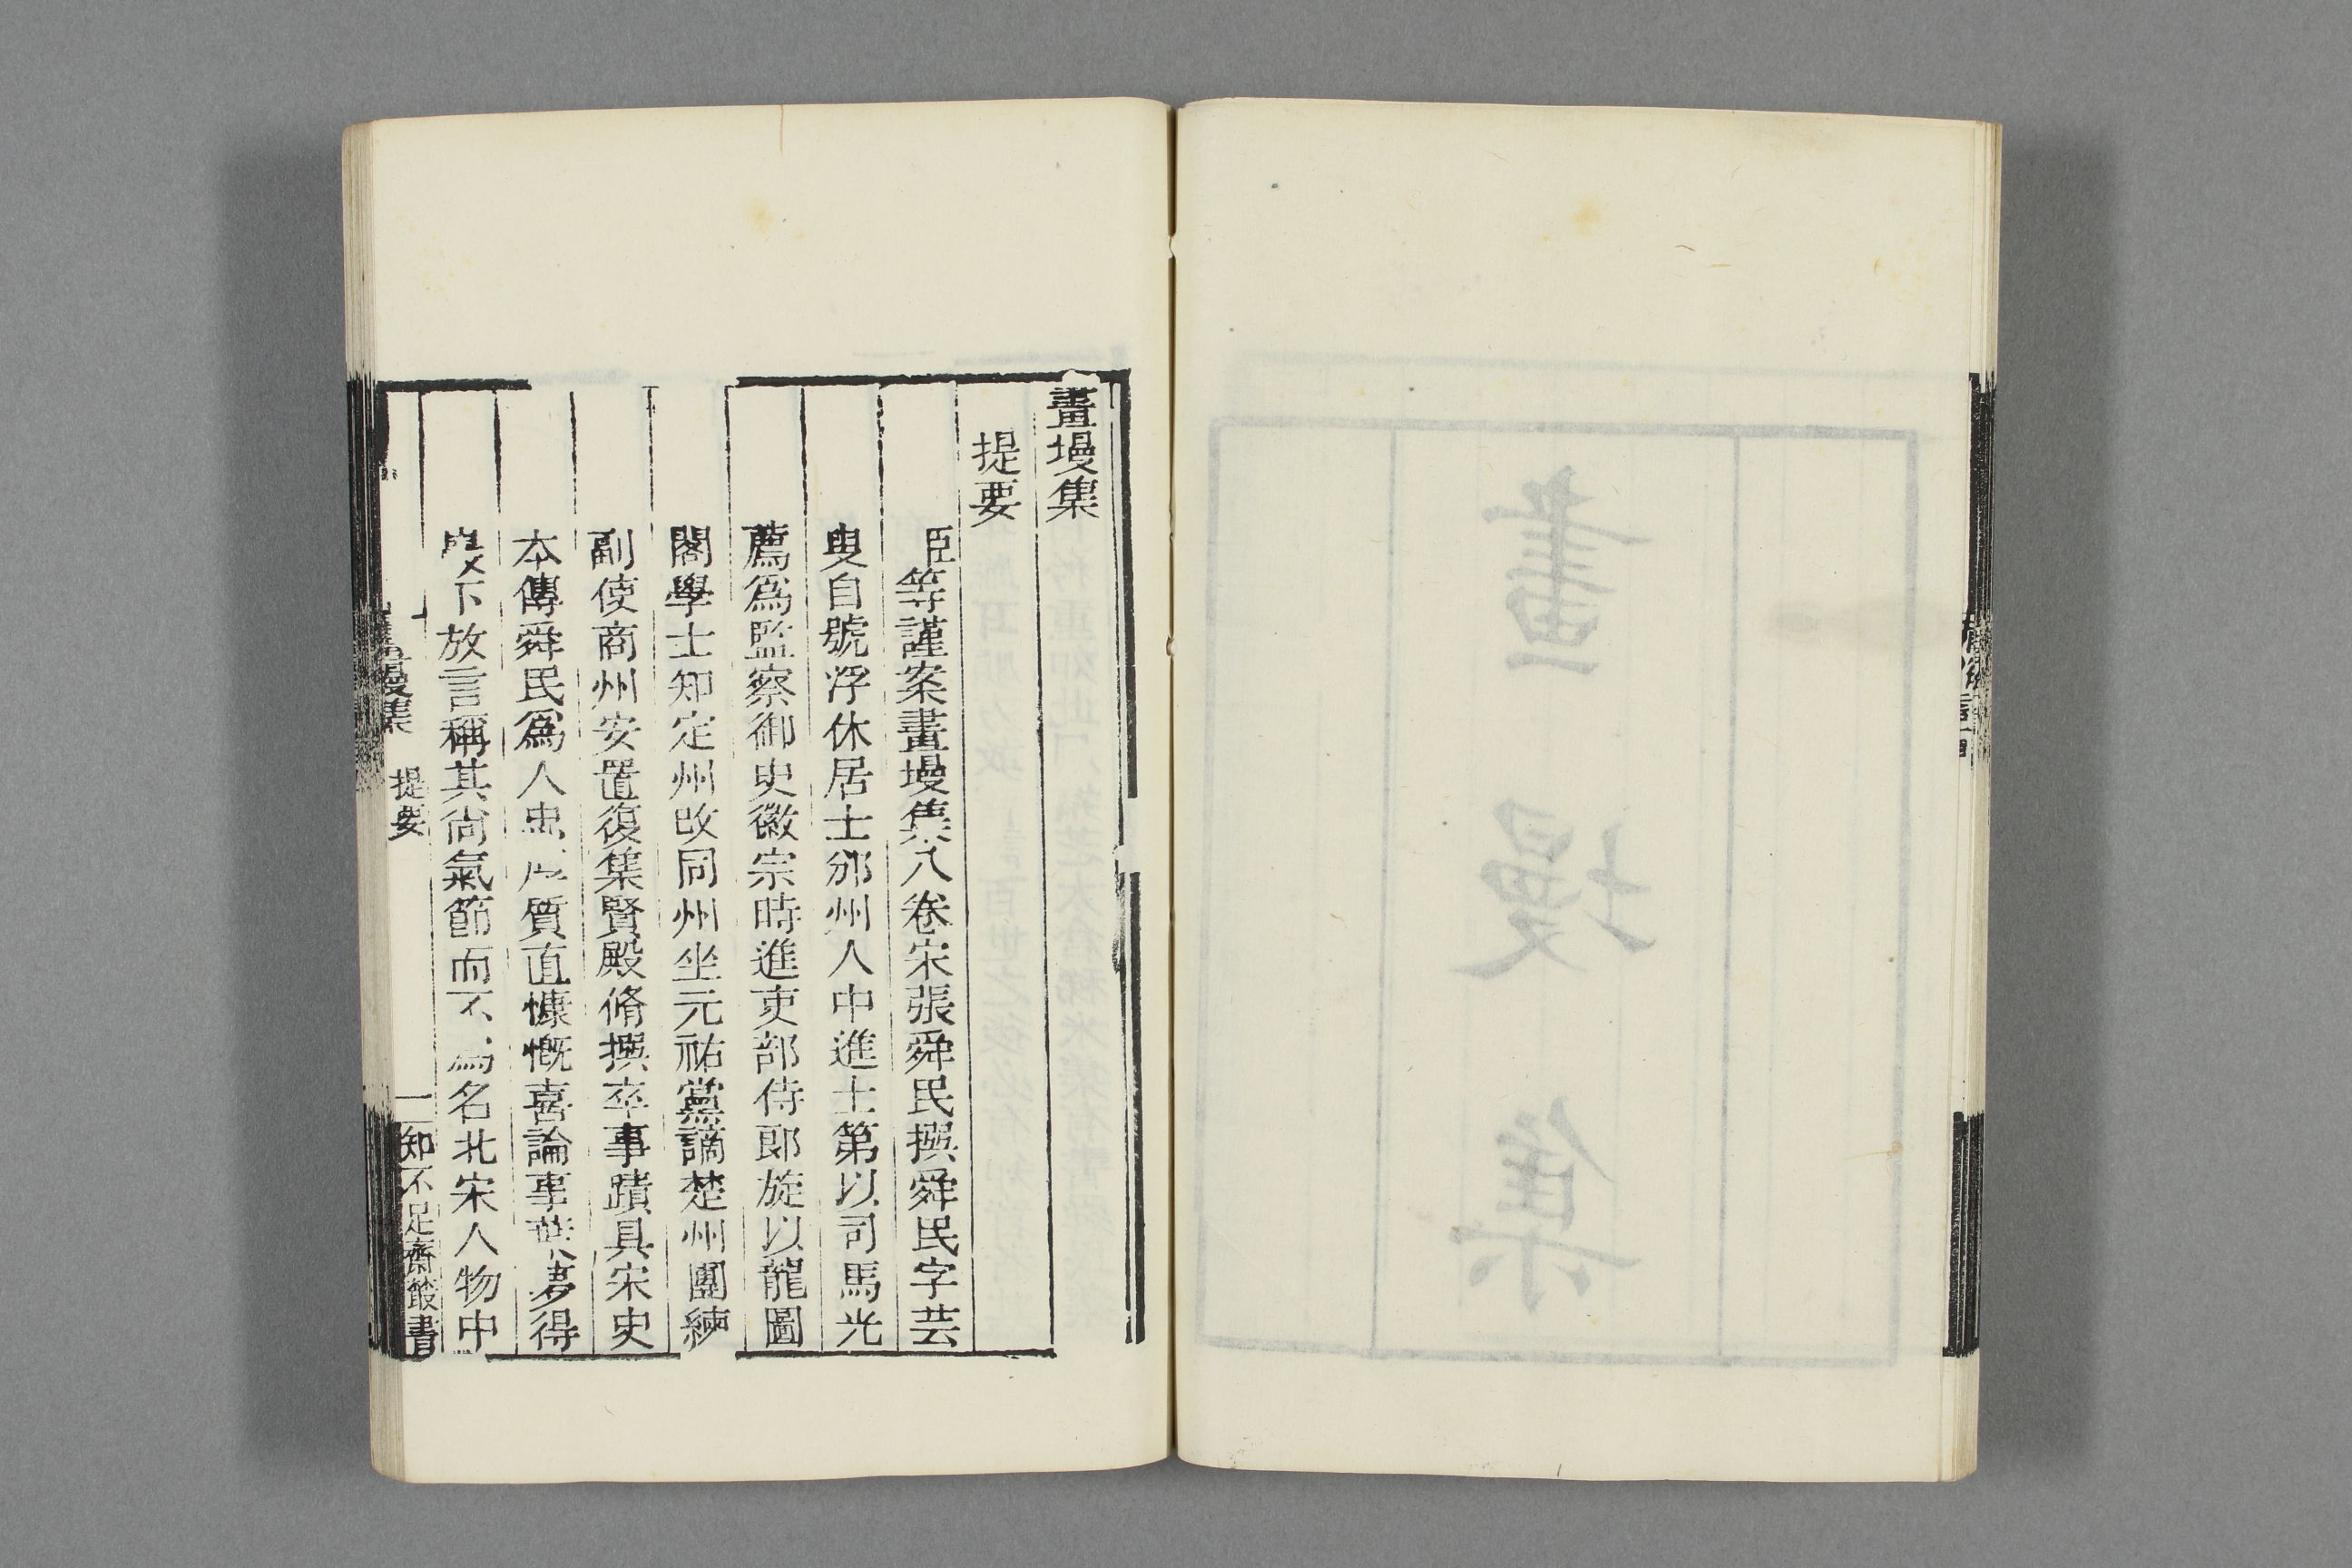 畫墁集
畫墁集
提要
臣等謹案畫墁集八卷宋張舜民撰舜民字芸
叟自號浮休居士邠州人中進士第以司馬光
薦爲監察御史徽宗時進吏部侍郎旋以龍圖
閣學士知定州改同州坐元祐黨謫楚州團練
副使商州安置復集賢殿脩撰卒事蹟具宋史
本傳舜民爲人忠厚質直慷慨喜論事葉夢得
巖下放言稱其尚氣節而不爲名北宋人物中
畫墁集 提要 一 知不足齋叢書